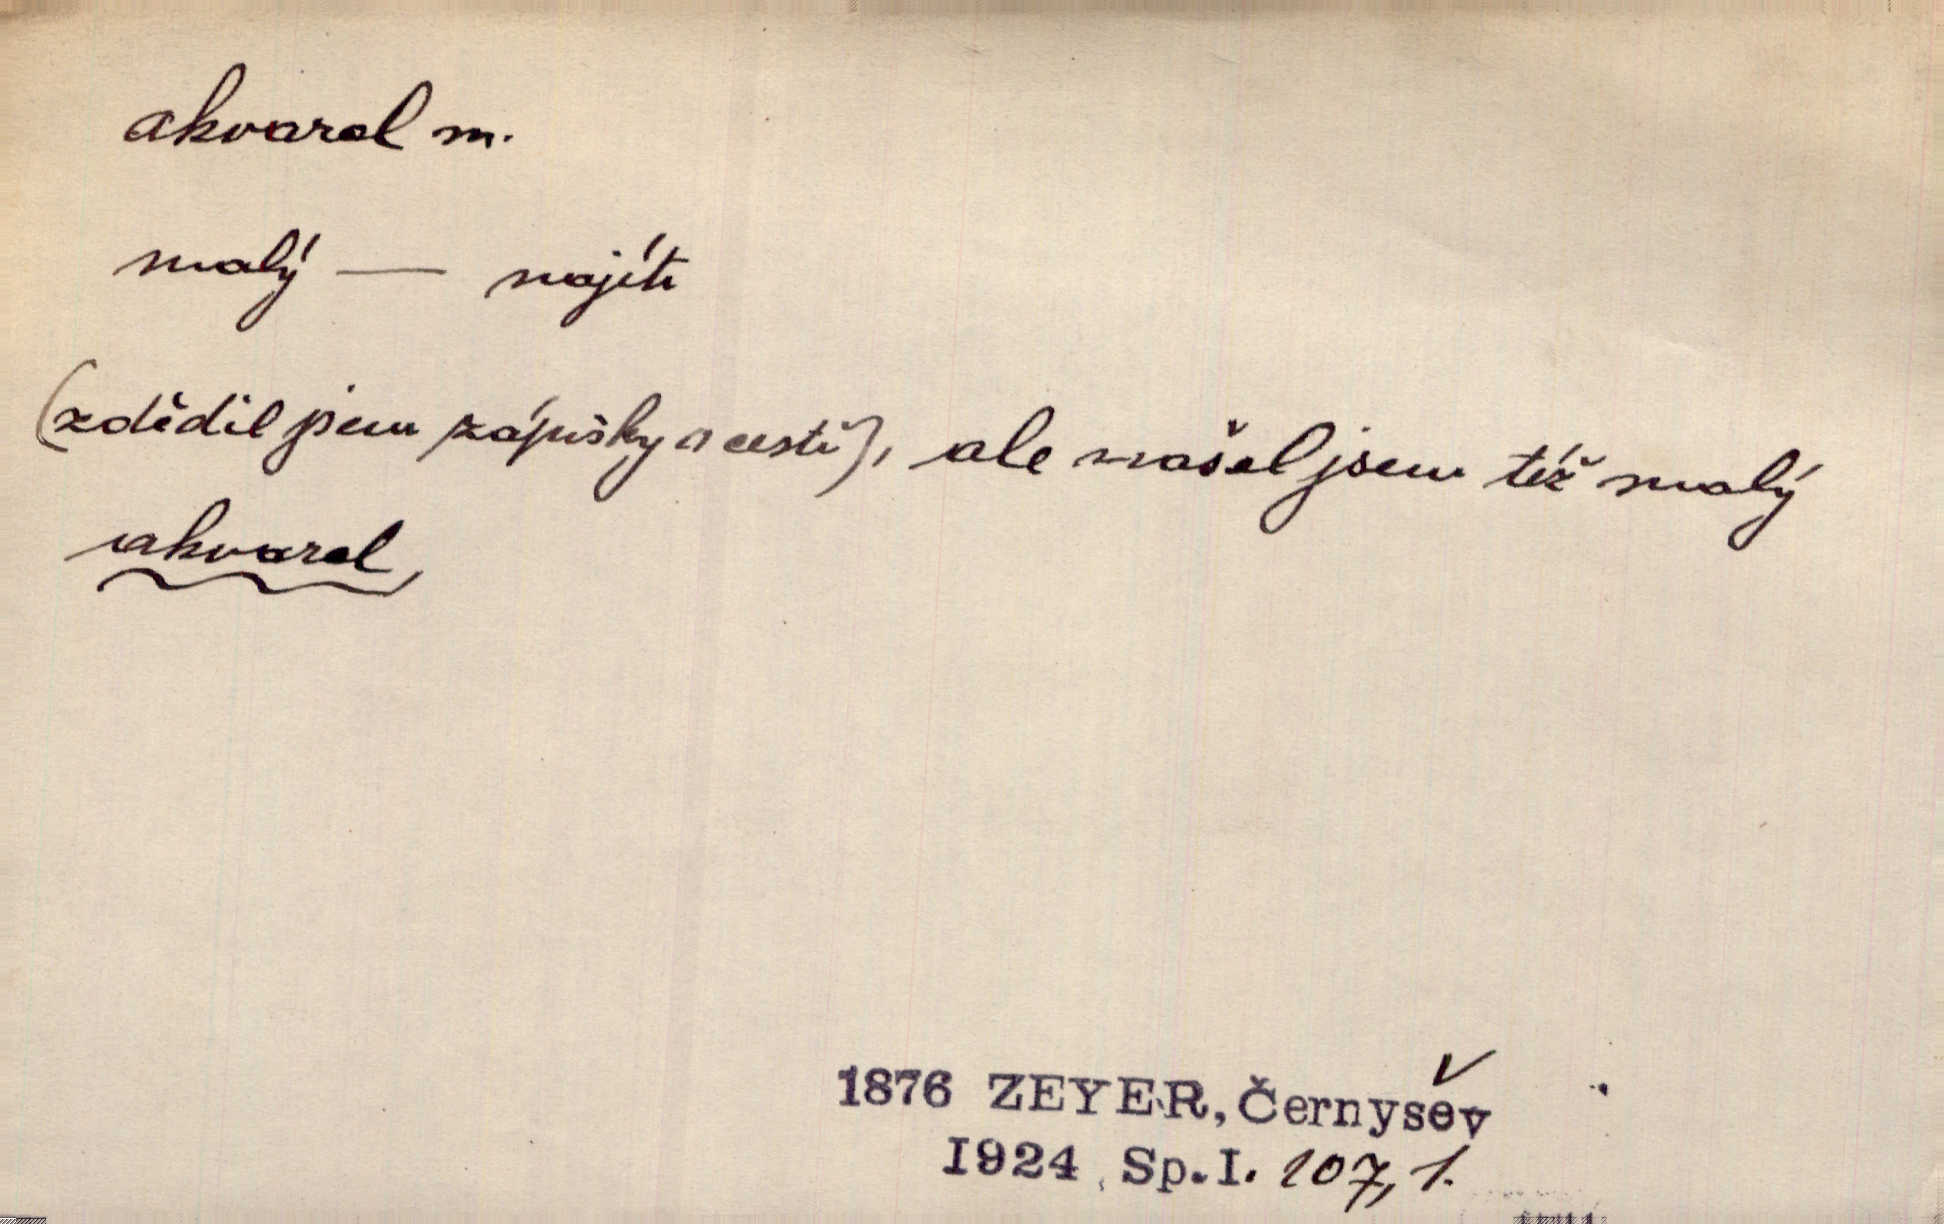 akvarel m.
malý — najíti
(zdědil jsem zápisky o cestě), ale našel jsem též malý
akvarel,
1876 ZEYER, Černyšev
1924 Sp.I. 107,1.